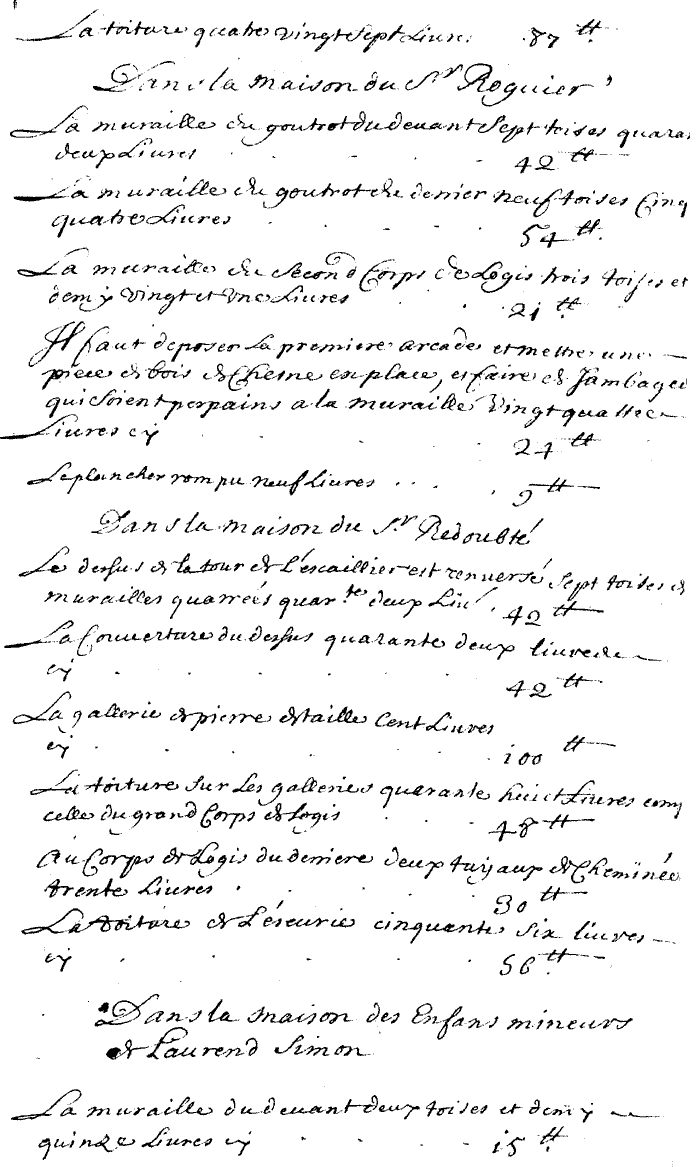 La toiture quatre vingt sept Livres 87 tt
Dans la maison du Sr Roguier
La muraille du goutrot du devant Sept toises quaran
deux Livres . . . 42 tt
La muraille du goutrot du derrier neuf toises Cinq
quatre Livres . . . 54 tt
La muraille du Second Corps de Logis trois toises et
demy Vingt et Une Livres . . 21 tt
Il faut deposer La premiere arcade et mettre une
piece de bois de Chesne en place, et faire de Jambages
qui Soient perpains a la muraille Vingt quattre
Livres cy . . . 24 tt
Le plancher rompu neuf Livres . . . . 9 tt
Dans la maison du Sr Redoubté
Le dessus de la tour de L'escaillier est renversé Sept toises de
murailles quarrées quar.te deux Liv. 42 tt
La Couverture du dessus quarante deux livres
cy . . . . 42 tt
La gallerie de pierre de taille Cent Livres
cy . . . . 100 tt
La toiture Sur Les galleries quarante huict Livres comp
celle du grand Corps de Logis . . 48 tt
Au Corps de Logis du derriere deux tuyaux de Cheminée
trente Livres . . . 30 tt
La toiture de L'escurie cinquante Six livres
cy . . . . 56 tt
Dans la maison des Enfans mineurs
de Laurend Simon
La muraille du devant deux toises et demy
quinze Livres cy . . . 15 tt